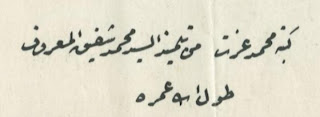 كتبه محمد عزت من تلاميذ السيد محمد شفيق المعروف
طول الله عمره